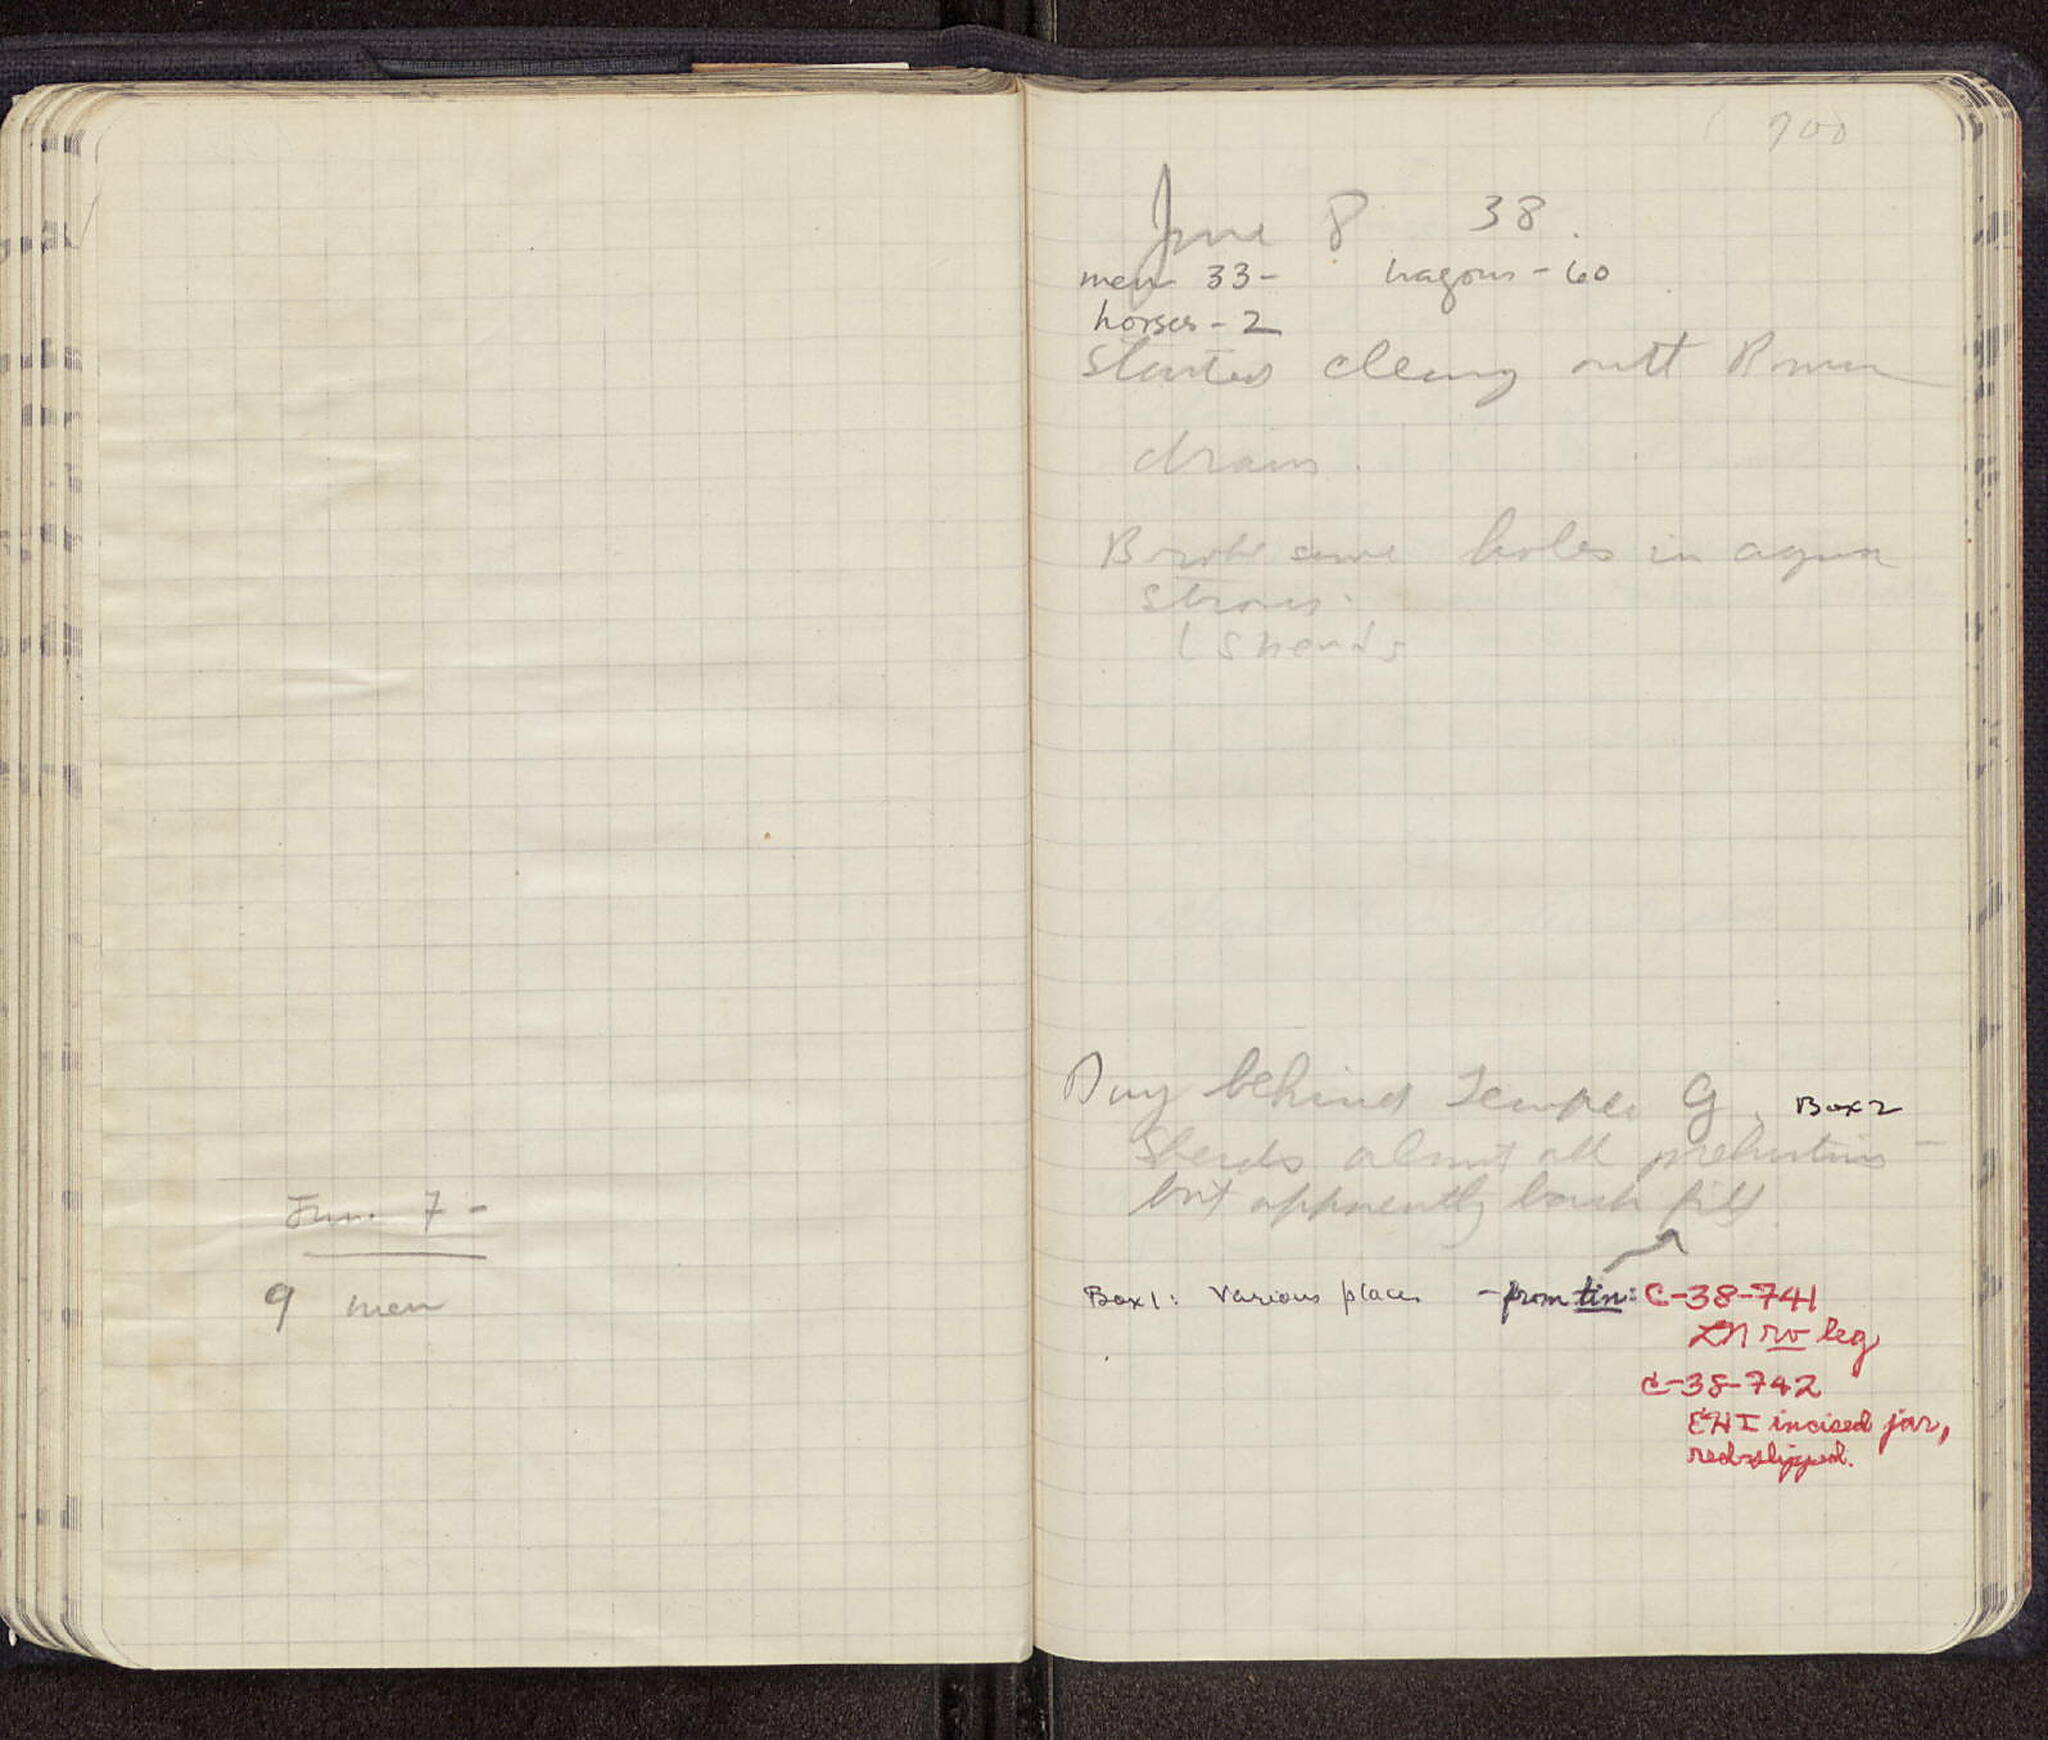 June 7 -
9 men
700
June 8 38.
men 33- wagons - 60
horses - 2
Started cleang outt Roman
drains.
Broke some holes in agua
(Sherds
Dug behind Temple G. Box 2
Sherds almost all prehistoric -
but apparently back fill
Box 1: Various places - from tin: C-38-741
LN rw leg
C-38-742
EH I incised jar,
red-slipped.